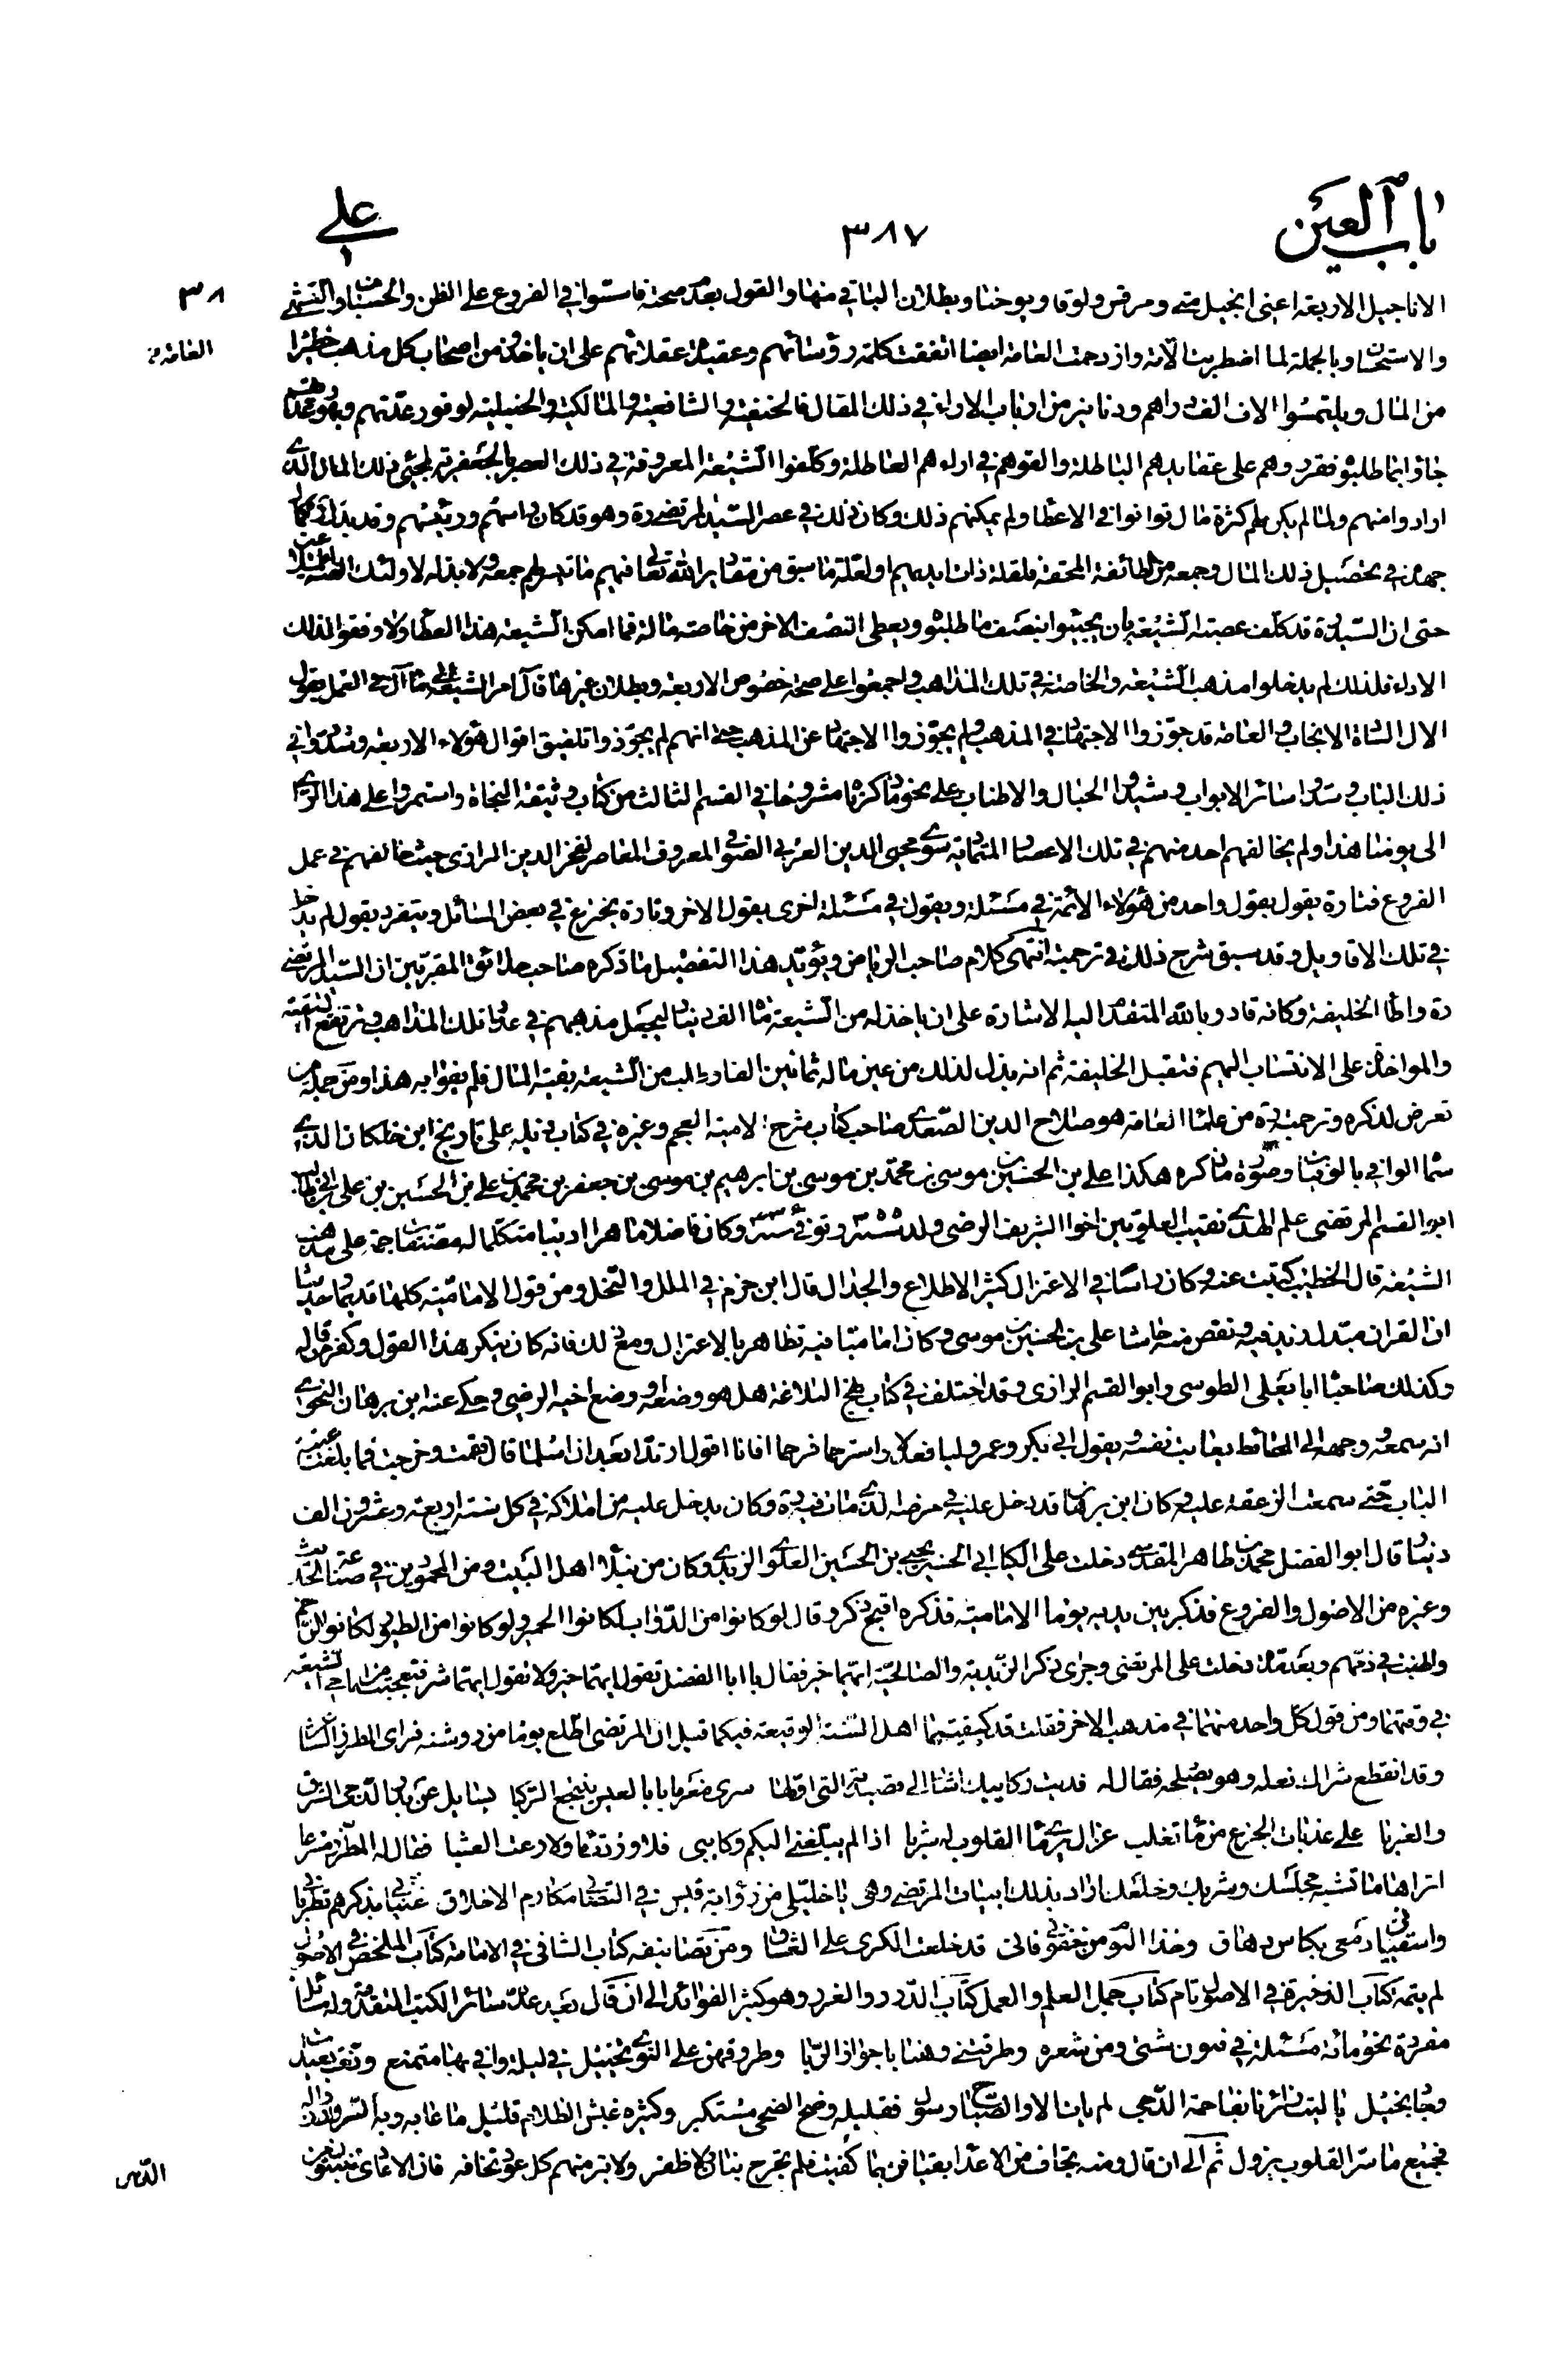 باب العين
٣٨٧
علي
٣٨
العامة
الاناجيل الاربعة اعنى انجيل متى ومرقس ولوقا ويوحنا وبطلان الباقي منها والقول بعدم صحته فاستوا في الفروع على الظن والحسبان والتشهي
والاستحسان وبالجملة لما اضطربت الامة وازدحمت العامة ايضا اتفقت كلمة رؤسائهم وعقيدة عقلائهم على ان ياخذوا من اصحاب كل مذهب خطيرا
من المال ويلتمسوا الاف الف دراهم ودنانير من ارباب الاراء في ذلك المقال فالحنفية والشافعية والمالكية والحنبلية لوفور عدتهم
جاؤا بما طلبوه فقرروهم على عقايدهم الباطلة والقوهم في اراءهم العاطلة وكلفوا الشيعة المعروفة في ذلك العصر بالجعفرية لمجيئ ذلك المال الذي
ارادوا منهم ولما لم يكن لهم كثرة مال توانوا في الاعطاء ولم يمكنهم ذلك وكان ذلك في عصر السيد المرتضى ره وهو قد كان راسهم ورئيسهم وقد بذل
جهده في تحصيل ذلك المال وجمعه من الطائفة المحقة فلقلة ذات ايديهم او لقلة ما سبق من تقدير الله تعالى فيهم ما تيسر لهم جمعه ولا بذله لاولئك
حتى ان السيد ره قد كلف عصبة الشيعة بان يجيئوا بنصف ما طلبوه ويعطى النصف الاخر من خاصة ماله فما امكن الشيعة هذا العطاء ولا وفقوا لذلك
الاداء فلذلك لم يدخلوا مذهب الشيعة والخاصة في تلك المذاهب واجمعوا على صحة خصوص الاربعة وبطلان غيرها فآل امر الشيعة الى ما آل في العمل بقول
الال السادة الانجاب والعامة قد جوزوا الاجتهاد في المذهب ولم يجوزوا الاجتهاد عن المذهب حتى انهم لم يجوزوا تلفيق اقوال هؤلاء الاربعة وشددوا في
ذلك الباب وسدوا سائر الابواب وشيدوا الحبال والاطناب على نحو ما ذكرناه مشروحا في القسم الثالث من كتاب وثيقة النجاة واستمروا على هذا الراي
الى يومنا هذا ولم يخالفهم احد منهم في تلك الاعصار المتمادية سوى محيى الدين العربي الصوفي المعروف المعاصر لفخر الدين الرازى حيث خالفهم في عمل
الفروع فتارة يقول بقول واحد من هؤلاء الائمة في مسئلة ويقول في مسئلة اخرى بقول الاخر وتارة يخترع في بعض المسائل ويتفرد بقول لم يدخل
في تلك الاقاويل وقد سبق شرح ذلك في ترجمته انتهى كلام صاحب الرياض ويؤيد هذا التفصيل ما ذكره صاحب حدائق المقربين ان السيد المرتضى
ره واطأ الخليفة وكانه قادر بالله المتقدم اليه الاشارة على ان ياخذ له من الشيعة مأة الف دينار ليجعل مذهبهم في عداد تلك المذاهب وترتفع التقية
والمواخذة على الانتساب اليهم فتقبل الخليفة ثم انه بذل لذلك من عين ماله ثمانين الفا وطلب من الشيعة بقية المال فلم يفوا به هذا ومن جملة من
تعرض لذكره وترجمته من علماء العامة هو صلاح الدين الصفدي صاحب كتاب شرح لامية العجم وغيره في كتاب ذيله على تاريخ ابن خلكان الذي
سماه الوافي بالوفيات وصورة ما ذكره هكذا علي بن الحسين بن موسى بن محمد بن موسى بن ابرهيم بن موسى بن جعفر بن محمد بن علي بن الحسين بن علي بن ابي طالب
ابو القسم المرتضى علم الهدى نقيب العلويين اخو الشريف الرضي ولد وتوفي وكان فاضلا ماهرا اديبا متكلما له مصنفات جمة على مذهب
الشيعة قال الخطيب كتبت عنه وكان راسا في الاعتزال كثير الاطلاع والجدال قال ابن حزم في الملل والنحل ومن قول الامامية كلها قديما وحديثا
ان القران مبدل زيد فيه ونقص منه حاشا علي بن الحسين بن موسى وكان اماميا فيه تظاهر بالاعتزال ومع ذلك فانه كان ينكر هذا القول وكفر من قاله
وكذلك صاحباه ابا يعلى الطوسي وابو القسم الرازى وقد اختلف في كتاب نهج البلاغة هل هو وضعه او وضع اخيه الرضي وحكى عنه ابن برهان النحوي
انه سمعه ووجهه الى الحائط يعاتب نفسه ويقول ابي بكر وعمر وليا فعدلا واسترحما فرحما افانا اقول ارتدا بعد ان اسلما قال فقمت وخرجت فما بلغت عتبة
الباب حتى سمعت الزعقة عليه وكان ابن برهان قد دخل عليه في مرضه الذي مات فيه وكان يدخل عليه من املاكه في كل سنة اربعة وعشرون الف
دينار قال ابو الفضل محمد بن طاهر المقدسي دخلت على الكيا ابي الحسين يحيى بن الحسين العلوي الزيدي وكان من نبلاء اهل البيت ومن المحمودين في صناعة الحديث
وغيره من الاصول والفروع فذكر بين يديه يوما الامامية فذكره اقبح ذكر وقال لو كانوا من الدواب لكانوا الحمير ولو كانوا من الطيور لكانوا الرخم
واطنب في ذمهم وبعد مدة دخلت على المرتضى وجرى ذكر الزيدية والصالحية ايهما خير فقال يا ابا الفضل تقول ايهما خير ولا تقول ايهما شر فتعجبت من امامي الشيعة
في وقتهما ومن قول كل واحد منهما في مذهب الاخر فقلت قد كفيتما اهل السنة الوقيعة فيكما قيل ان المرتضى اطلع يوما من روشنه فراى المطرز الشاعر
وقد انقطع شراك نعله وهو يصلحه فقال له فديت ركايبك اشار الى قصيدته التي اولها سرى مغرما بالعيس ينتجع الركبا يسايل عن بدر الدجى الشرق
والغربا على عذبات الجزع من ماء تغلب غزال يرى ماء القلوب له شربا اذا لم تبلغني اليكم ركايبي فلا وردت ماء ولا رعت العشبا فقال له المطرز مسرعا
اتراها ما تشبه مجلسك وشربك وخلعك اراد بذلك ابيات المرتضى وهي يا خليلي من ذؤابة قيس في التصابي مكارم الاخلاق غنياني بذكرهم تطرباني
واسقياني دمعي بكاس دهاق وخذا النوم من جفوني فاني قد خلعت الكرى على العشاق ومن تصانيفه كتاب الشافي في الامامة كتاب الملخص في الاصول
لم يتمه كتاب الذخيرة في الاصول تام كتاب جمل العلم والعمل كتاب الدرر والغرر وهو كثير الفوائد الى ان قال بعد عد سائر الكتب المتقدمة وله مسائل
مفردة نحو مائة مسئلة في فنون شتى ومن شعره وطرقنني وهنا باجواز الربا وطروقهن على النوى تخييل في ليلة وافى بها متمنع ودنت بعيدات
وجاد بخيل يا ليت زائرنا بفاحمة الدجى لم يات الا والصباح رسول فقليله وضح الضحى مستكبر وكثيره غبش الظلام قليل ما عابه وبه السرور زواله
فجميع ما سر القلوب يزول ثم الى ان قال ومنه تجاف من الاعداء بقيا فربما كفيت فلم تجرح بناب ولا ظفر ولا تبر منهم كل عود تخافه فان الاعادي ينبتون
الدهر